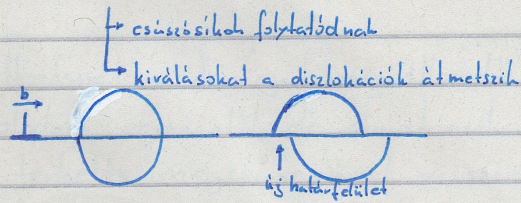 csúszósíkok folytatódnak
kiválásokat a diszlokációk átmetszik
b
új határfelület